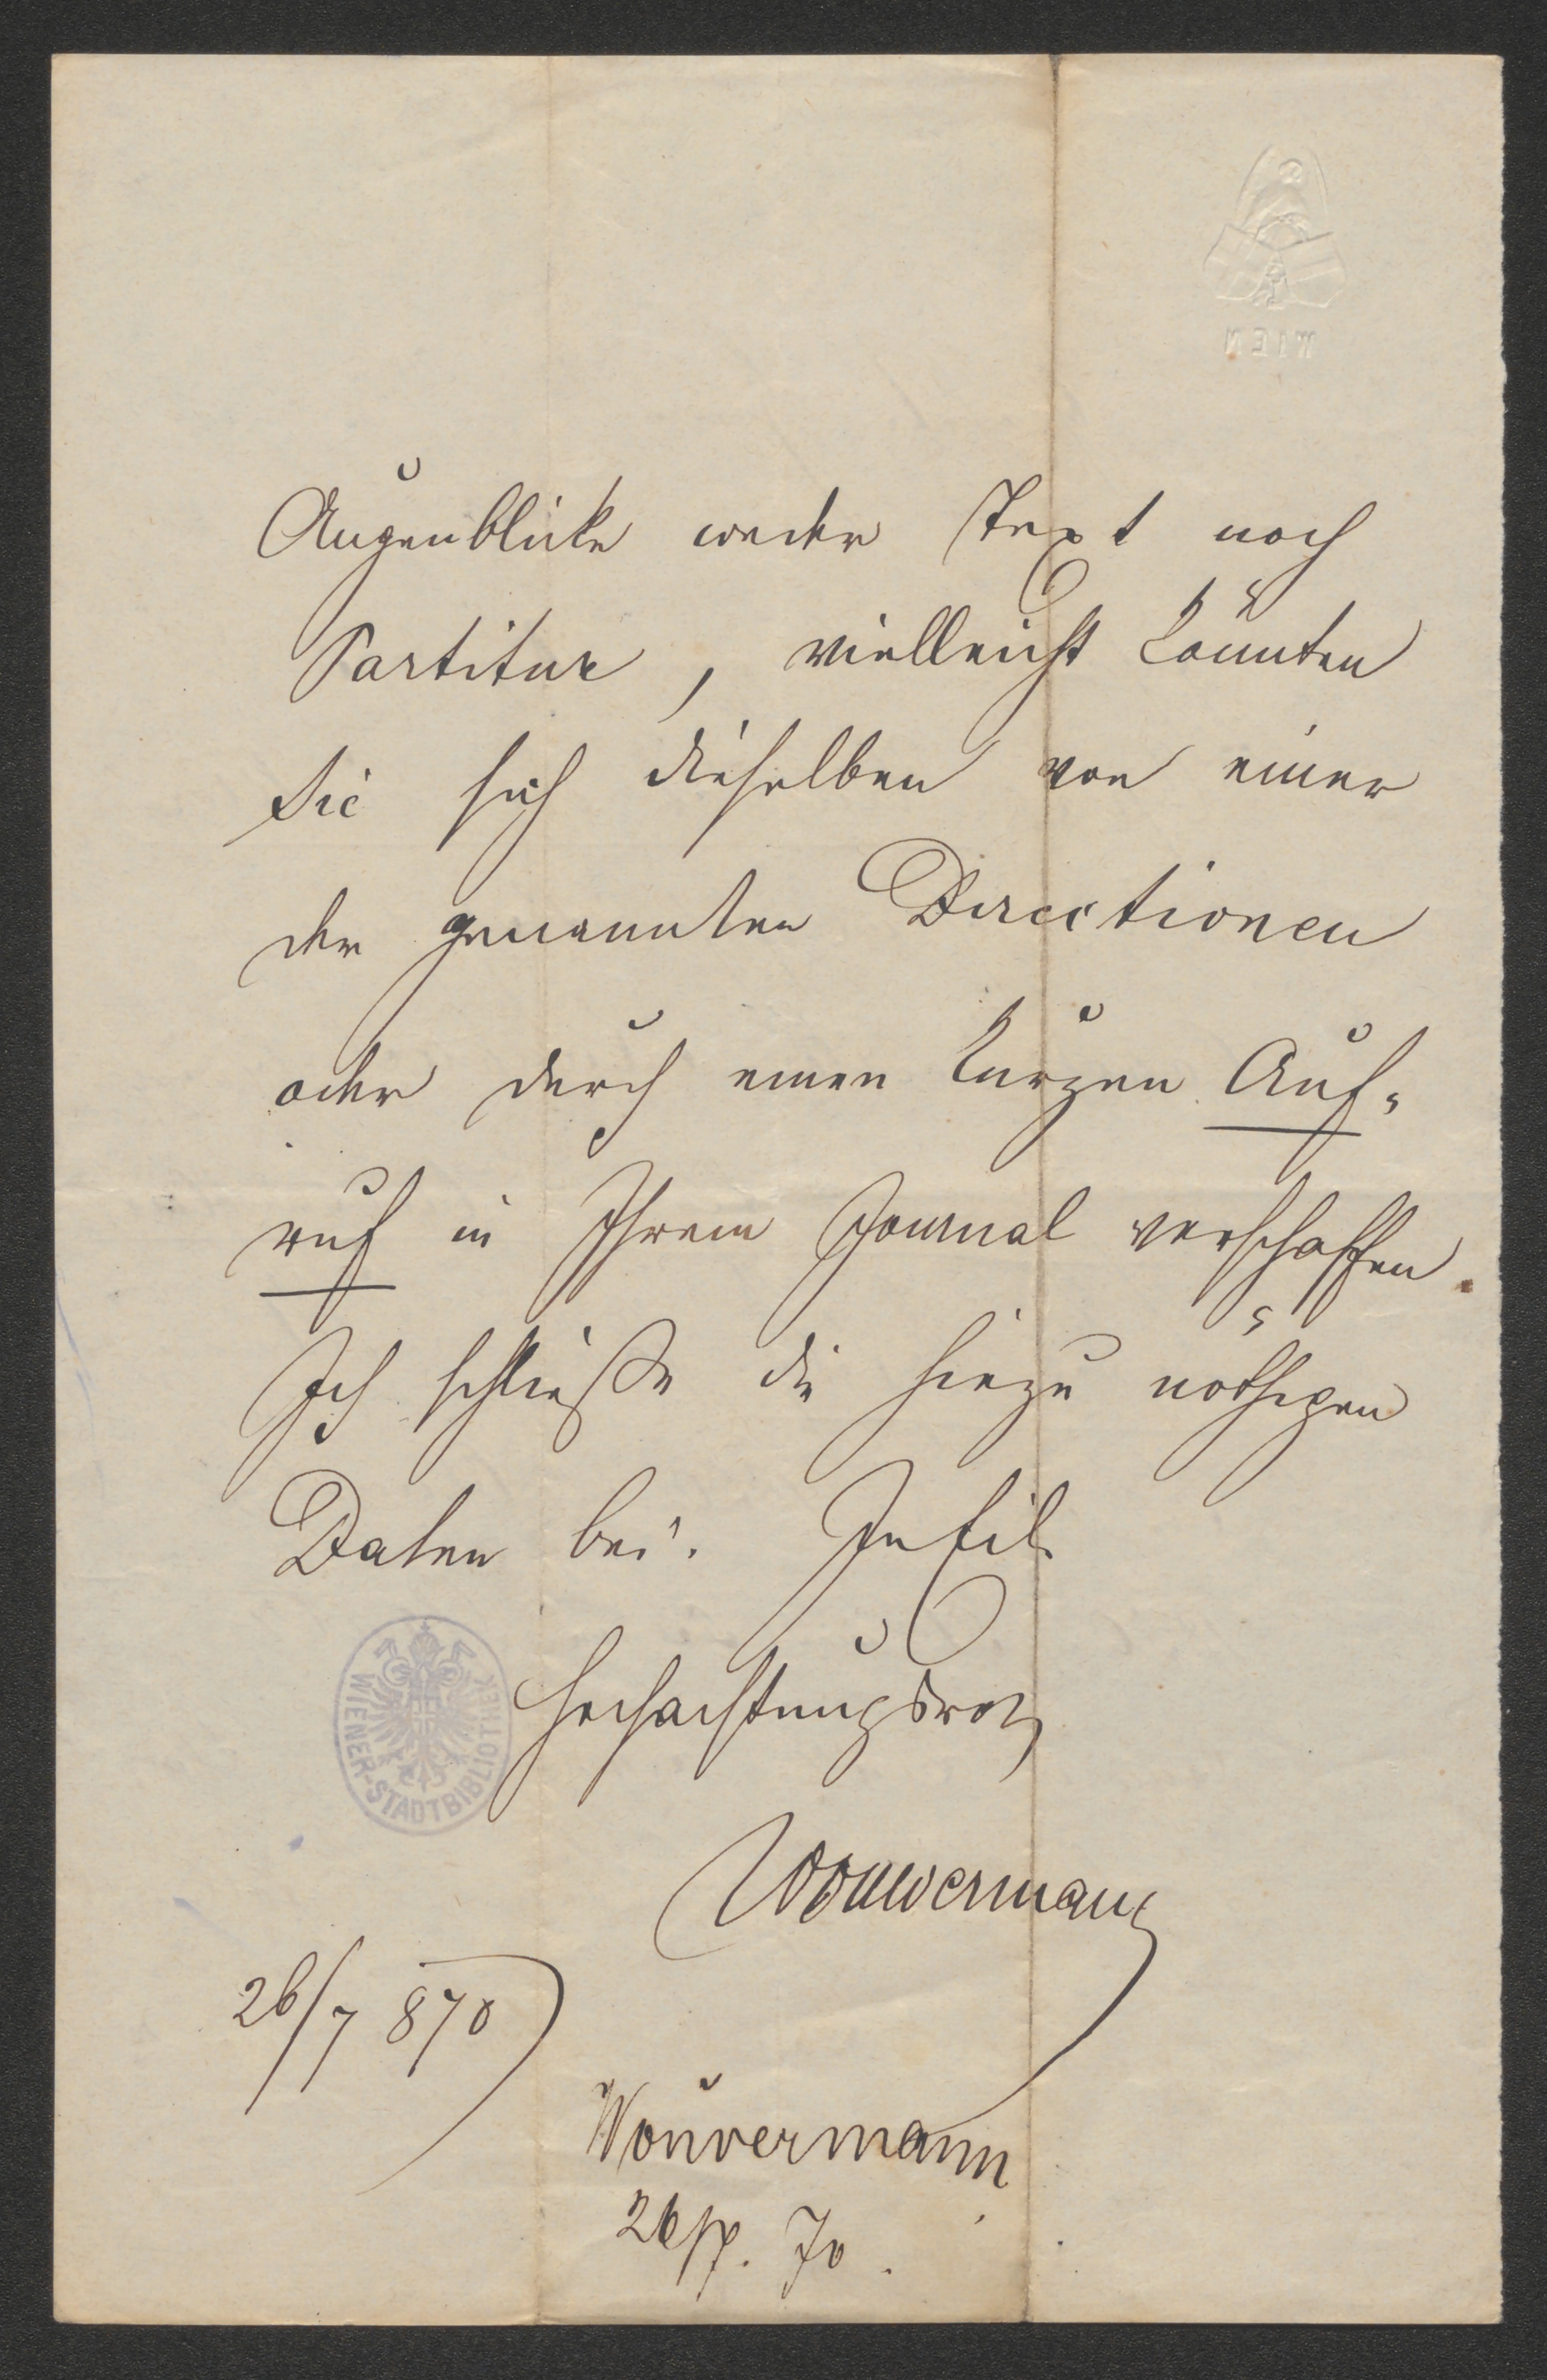 WIEN
Augenblicke weder Text noch
Partitur, vielleicht könnten
Sie sich dieselben von einer
der genannten Directionen
oder durch einen kurzen Auf-
ruf in Ihrem Journal verschaffen.
Ich schließe die hiezu nöthigen
Daten bei. In Eile
hochachtungsvoll
WIENER-STADTBIBLIOTHEK
Wouwermans
26/7 870
Wouvermann
26/7. 70.